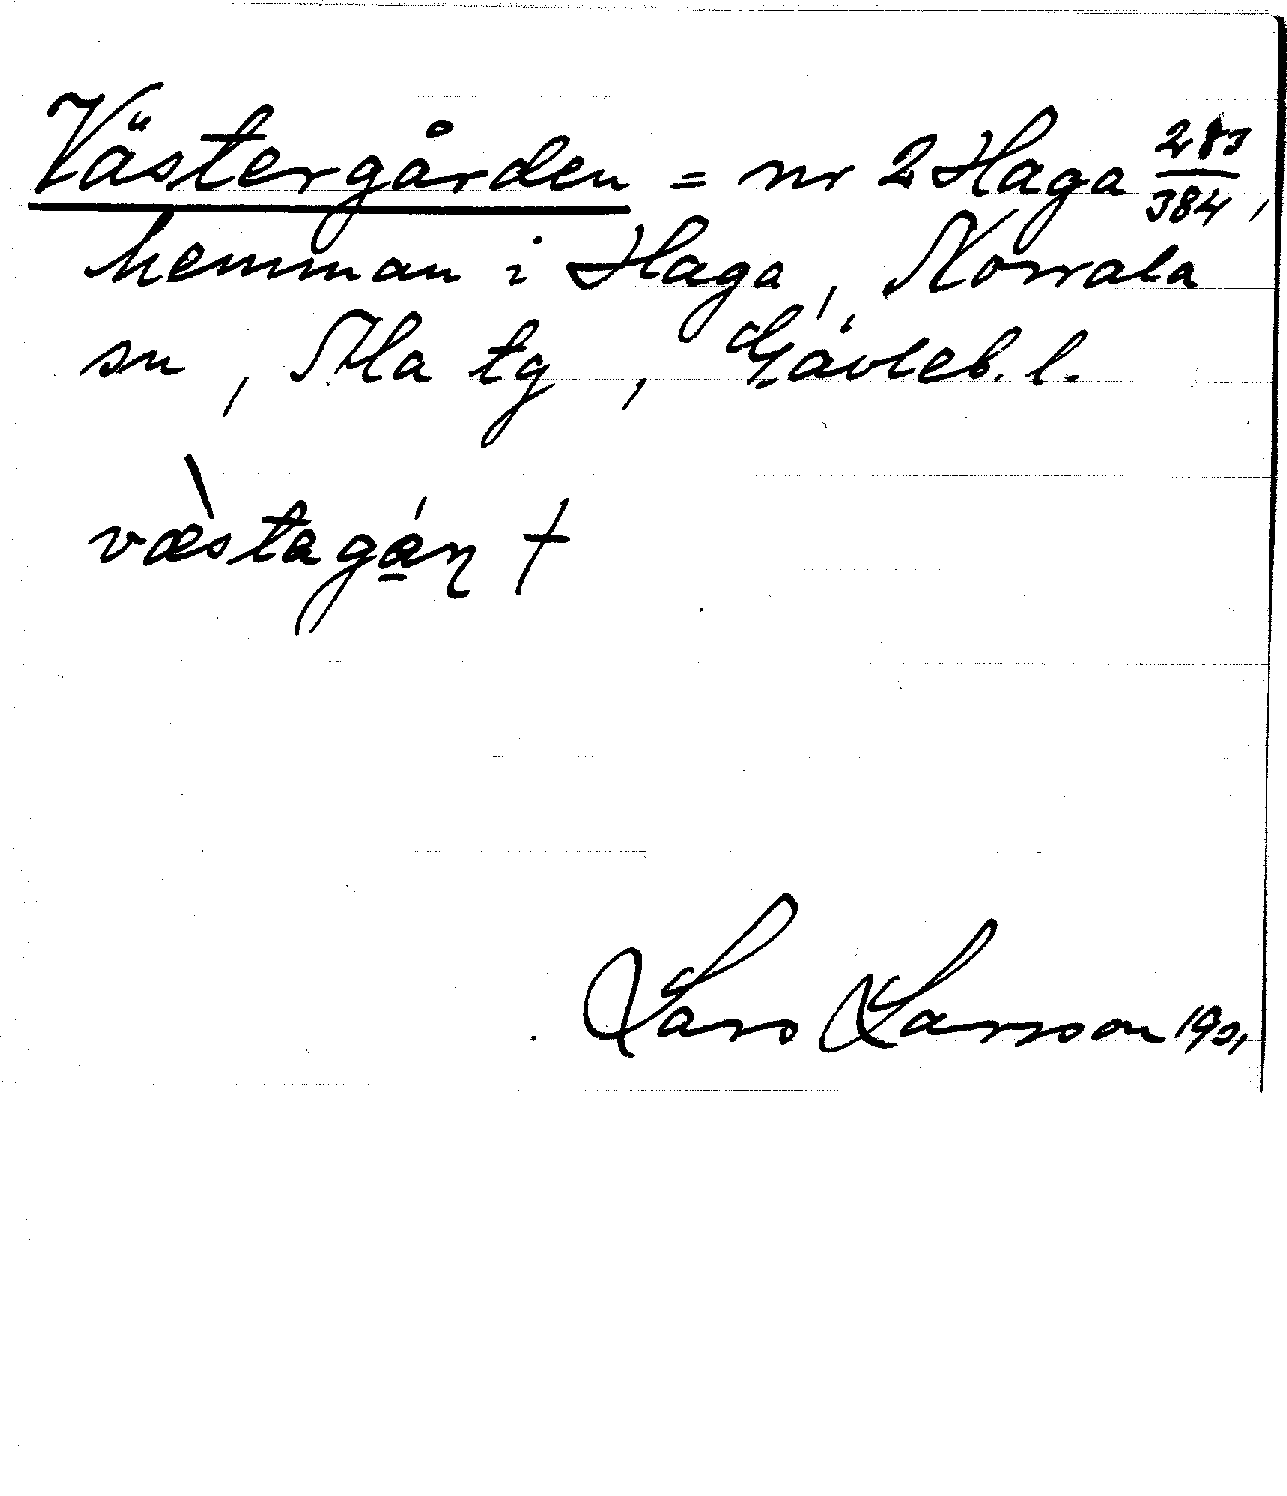 Västergården = nr 2 Haga 283/384,
hemman i Haga, Norrala
sn, Ala tg, Gävleb. l.
væ̀stagá̱ɳ †
Lars Larsson